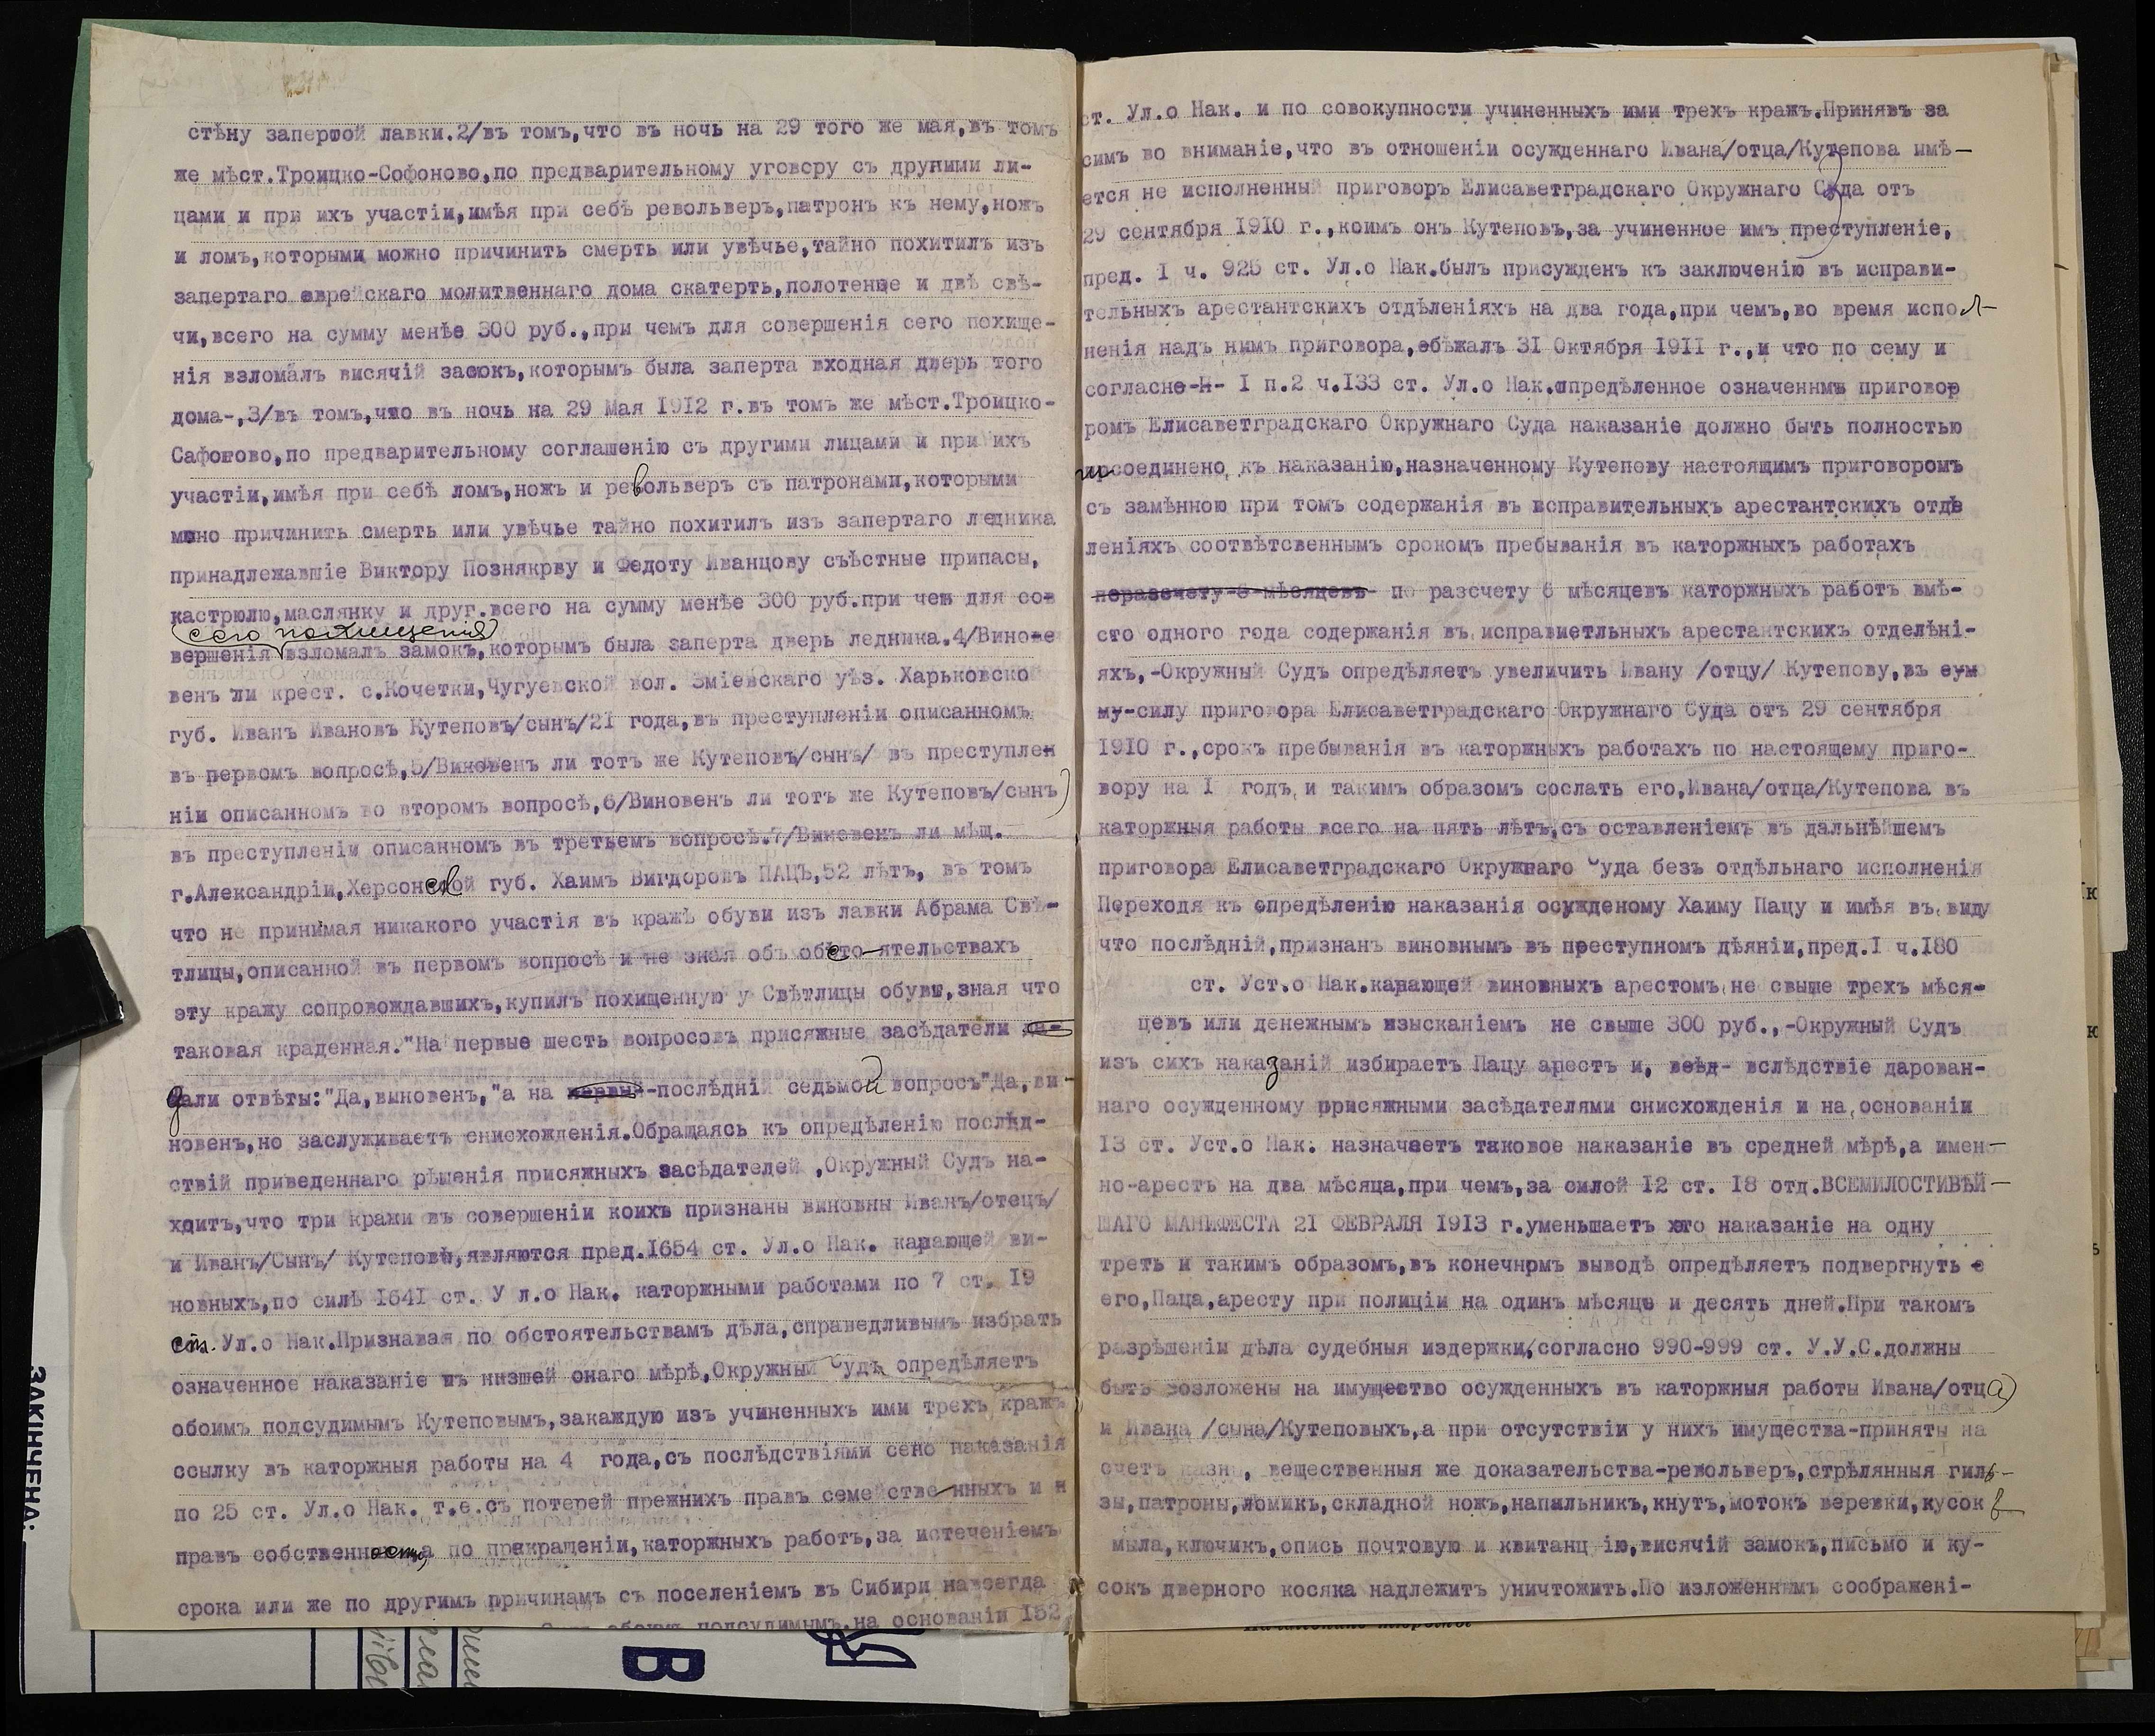 стѣну запертой лавки.2/въ томъ,что въ ночь на 29 того же мая,въ томъ
же мѣст.Троицко-Софоново,по предварительному уговору съ другими ли-
цами и при ихъ участіи,имѣя при себѣ револьверъ,патронъ къ нему,ножъ
и ломъ,которыми можно причинить смерть или увѣчье,тайно похитилъ изъ
запертаго еврейскаго молитвеннаго дома скатерть,полотенце и двѣ свѣ-
чи,всего на сумму менѣе 300 руб.,при чемъ для совершенія сего похище-
нія взломалъ висячій замокъ,которымъ была заперта входная дверь того
дома-,3/въ томъ,что въ ночь на 29 Мая 1912 г.въ томъ же мѣст.Троицко-
Сафоново,по предварительному соглашенію съ другими лицами и при ихъ
участіи,имѣя при себѣ ломъ,ножъ и револьверъ съ патронами,которыми
мжно причинить смерть или увѣчье тайно похитилъ изъ запертаго ледника
принадлежавшіе Виктору Познякрву и Федоту Иванцову съѣстные припасы,
кастрюлю,маслянку и друг.всего на сумму менѣе 300 руб.при чем для сов
сего похищенія
вершенія взломалъ замокъ,которымъ была заперта дверь ледника.4/Вино-е
венъ ли крест. с.Кочетки,Чугуевской вол. Зміевскаго уѣз. Харьковско
губ. Иванъ Ивановъ Кутеповъ/сынъ/21 года,въ преступленіи описанномъ
въ первомъ вопросѣ,5/Виновенъ ли тотъ же Кутеповъ/сынъ/ въ преступлен
ніи описанномъ во второмъ вопросѣ,6/Виновенъ ли тотъ же Кутеповъ/сынъ)
въ преступленіи описанномъ въ третьемъ вопросѣ.7/Виновенъ ли мѣщ.
г.Александріи,Херсонской губ. Хаимъ Вигдоровъ ПАЦЪ,52 лѣтъ, въ томъ
что не принимая никакого участія въ кражѣ обуви изъ лавки Абрама Свѣ-
тлицы,описанной въ первомъ вопросѣ и не зная объ обсто-ятельствахъ
эту кражу сопровождавшихъ,купилъ похищенную у Свѣтлицы обувь,зная что
таковая краденная."На первые шесть вопросовъ присяжные засѣдатели да-
дали отвѣты:"Да,выновенъ,"а на первый-послѣдній седьмой вопросъ"Да,ви-
новенъ,но заслуживаетъ снисхожденія.Обращаясь къ опредѣленію послѣд-
ствій приведеннаго рѣшенія присяжныхъ засѣдателей ,Окружный Судъ на-
хдитъ,что три кражи въ совершеніи коихъ признаны виновны Иванъ/отецъ/
и Иванъ/Сынъ/ Кутеповы,являются пред.1654 ст. Ул.о Нак. карающей ви-
новныхъ,по силѣ 1641 ст. У л.о Нак. каторжными работами по 7 ст. 19
ст. Ул.о Нак.Признавая по обстоятельствамъ дѣла,справедливымъ избрать
означенное наказаніе въ низшей онаго мѣрѣ,Окружный Судъ опредѣляетъ
обоимъ подсудимымъ Кутеповымъ,закаждую изъ учиненныхъ ими трехъ кражъ
ссылку въ каторжныя работы на 4 года,съ послѣдствіями сено наказанія
по 25 ст. Ул.о Нак. т.е.съ потерей прежнихъ правъ семействе-нныхъ и н
правъ собственности,а по прекращеніи,каторжныхъ работъ,за истеченіемъ
срока или же по другимъ причинамъ съ поселеніемъ въ Сибири навсегда
обоимъ подсудимымъ,на основаніи 152
ст. Ул.о Нак. и по совокупности учиненныхъ ими трехъ кражъ.Принявъ за
симъ во вниманіе,что въ отношеніи осужденнаго Ивана/отца/Кутепова имѣ-
ется не исполненный приговоръ Елисаветградскаго Окружнаго Суда отъ
29 сентября 1910 г.,коимъ онъ Кутеповъ,за учиненное имъ преступленіе,
пред. 1 ч. 925 ст. Ул.о Нак.былъ присужденъ къ заключенію въ исправи-
тельныхъ арестантскихъ отдѣленіяхъ на два года,при чемъ,во время испол-
ненія надъ нимъ приговора,сбѣжалъ 31 Октября 1911 г.,и что по сему и
согласно-Н- 1 п.2 ч.133 ст. Ул.о Нак.опредѣленное означеннмъ приговор
ромъ Елисаветградскаго Окружнаго Суда наказаніе должно быть полностью
присоединено къ наказанію,назначенному Кутепову настоящимъ приговоромъ
съ замѣнною при томъ содержанія въ исправительныхъ арестантскихъ отдѣ
леніяхъ соотвѣтсвеннымъ срокомъ пребыванія въ каторжныхъ работахъ
поразсчету 6 мѣсяцевъ по разсчету 6 мѣсяцевъ каторжныхъ работъ вмѣ-
сто одного года содержанія въ исправиетльныхъ арестантскихъ отделѣні-
яхъ,-Окружный Судъ опредѣляетъ увеличить Ивану /отцу/ Кутепову,въ сум
му-силу приговора Елисаветградскаго Окружнаго Суда отъ 29 сентября
1910 г.,срокъ пребыванія въ каторжныхъ работахъ по настоящему приго-
вору на 1 годъ и такимъ образомъ сослать его,Ивана/отца/Кутепова въ
каторжныя работы всего на пять лѣтъ,съ оставленіемъ въ дальнѣйшемъ
приговора Елисаветградскаго Окружнаго Суда безъ отдѣльнаго исполненія
Переходя къ опредѣленію наказанія осужденому Хаиму Пацу и имѣя въ виду
что послѣдній,признанъ виновнымъ въ преступномъ дѣяніи,пред.1 ч.180
ст. Уст.о Нак.карающей виновныхъ арестомъ не свыше трехъ мѣся-
цевъ или денежнымъ взысканіемъ не свыше 300 руб.,-Окружный Судъ
изъ сихъ наказаній избираетъ Пацу арестъ и, всѣд- вслѣдствіе дарован-
наго осужденному присяжными засѣдателями снисхожденія и на основаніи
13 ст. Уст.о Нак. назначаетъ таковое наказаніе въ средней мѣрѣ,а имен-
но-арестъ на два мѣсяца,при чемъ,за силой 12 ст. 18 отд.ВСЕМИЛОСТИВѢЙ-
ШАГО МАНИФЕСТА 21 ФЕВРАЛЯ 1913 г.уменьшаетъ это наказаніе на одну
треть и такимъ образомъ,въ конечнрмъ выводѣ опредѣляетъ подвергнуть е
его,Паца,аресту при полиціи на одинъ мѣсяцъ и десять дней.При такомъ
разрѣшеніи дѣла судебныя издержки,согласно 990-999 ст. У.У.С.должны
быть возложены на имущество осужденныхъ въ каторжныя работы Ивана/отца)
и Ивана /сына/Кутеповыхъ,а при отсутствіи у нихъ имущества-приняты на
счетъ казны, вещественныя же доказательства-револьверъ,стрѣлянныя гиль-
зы,патроны,ломикъ,складной ножъ,напильникъ,кнутъ,мотокъ веревки,кусок
мыла,ключикъ,опись почтовую и квитанц ію,висячій замокъ,письмо и ку-
сокъ дверного косяка надлежитъ уничтожить.По изложеннымъ соображені-
ЗАКІНЧЕНА:
В